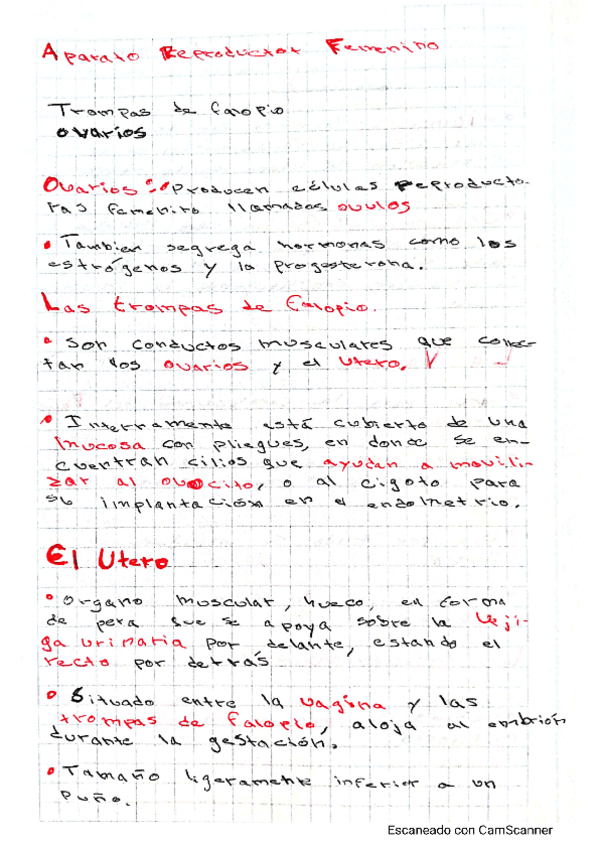 Aparato Reproductor Femenino
Trompas de falopio
ovarios
Ovarios: Producen células reproducto-
ras femenino llamadas ovulos
• Tambien segrega hormonas como los
estrógenos y la progesterona.
Las trompas de falopio.
• Son conductos musculares que conec-
tan los ovarios y el utero.
• Internamente está cubierto de una
mucosa con pliegues, en donde se en-
cuentran cilios que ayudan a movili-
zar al ovocito, o al cigoto para
su implantación en el endometrio.
El Utero
• Organo muscular, hueco, en forma
de pera que se apoya sobre la veji-
ga urinaria por delante, estando el
recto por detrás
• Situado entre la vagina y las
trompas de falopio, aloja al embrión
durante la gestación.
• Tamaño ligeramente inferior a un
puño.
Escaneado con CamScanner